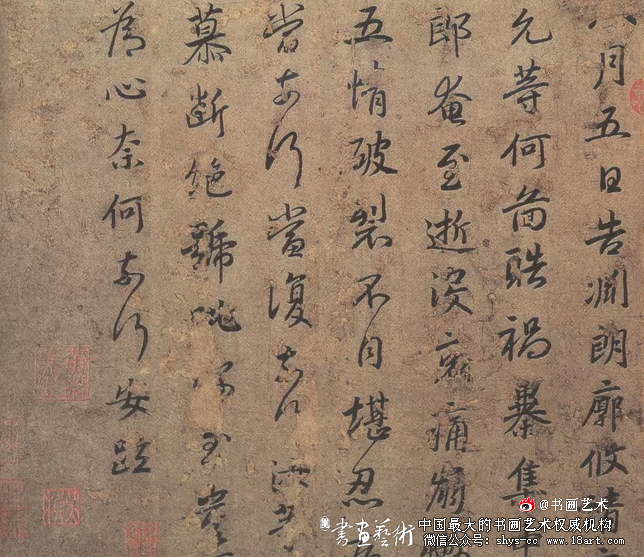 八月五日告淵朗廓攸靖
允等何啚酷禍暴集
郎奄至逝没哀痛崩
五情破裂不自堪忍
當奈何當復奈何汝等
慕斷絶號咷深至豈
為心奈何奈何安疏
@书画艺术
書畫藝術 中国最大的书画艺术权威机构
微信公众号：shys-cc www.18art.com